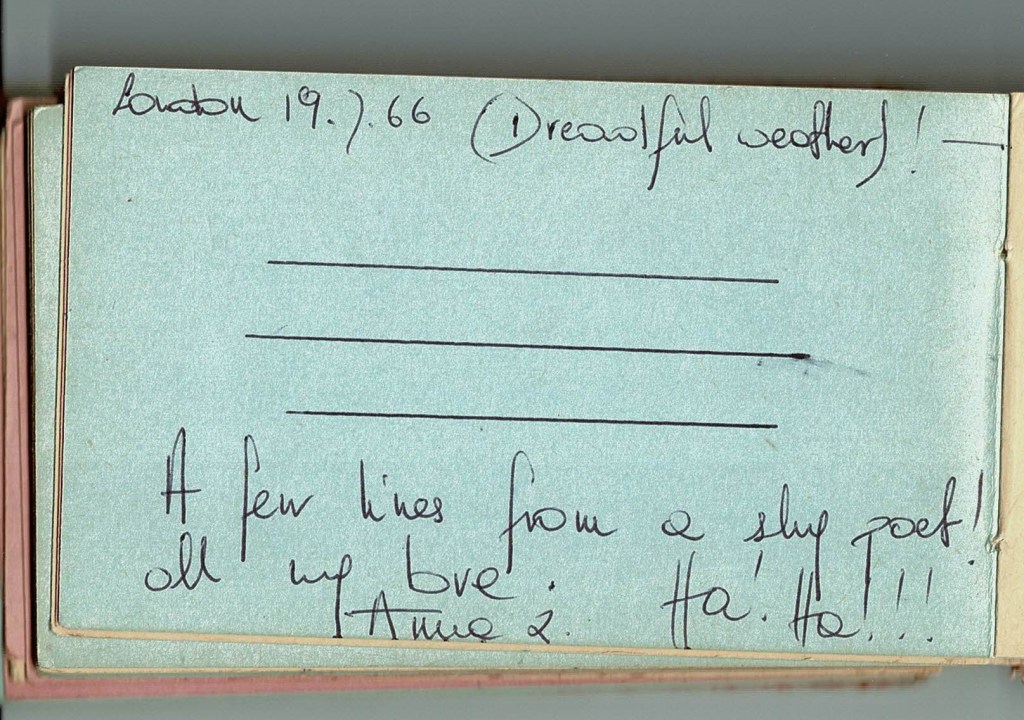 London 19.7.66 (Dreadful weather)! —
A few lines from a shy poet!
all my love. Ha! Ha!!!
Anna 2.